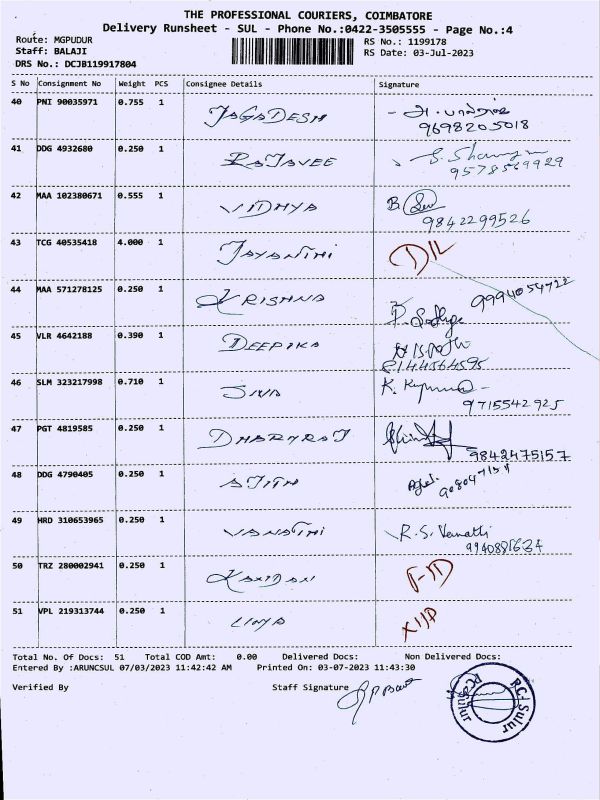 THE PROFESSIONAL COURIERS, COIMBATORE
Delivery Runsheet - SUL - Phone No.:0422-3505555 - Page No.:4
Route: MGPUDUR RS No.: 1199178
Staff: BALAJI RS Date: 03-Jul-2023
DRS No.: DCJB119917804
S No Consignment No Weight PCS Consignee Details Signature
40 PNI 90035971 0.755 1 JAGADESH
9698205018
41 DDG 4932680 0.250 1 RAJAVEE
9578569929
42 MAA 102380671 0.555 1 VIDHYA B
9842299526
43 TCG 40535418 4.000 1 JAYANTHI D/L
44 MAA 571278125 0.250 1 KRISHNA 9994054722
45 VLR 4642188 0.390 1 DEEPIKA
8144564595
46 SLM 323217998 0.710 1 SIVA K.
9715542925
47 PGT 4819585 0.250 1 DHARMRAJ
9842475157
48 DDG 4790405 0.250 1 AJITH
49 HRD 310653965 0.250 1 VANATHI R.S. Vanathi
50 TRZ 280002941 0.250 1
51 VPL 219313744 0.250 1
Total No. Of Docs: 51 Total COD Amt: 0.00 Delivered Docs: Non Delivered Docs:
Entered By :ARUNCSUL 07/03/2023 11:42:42 AM Printed On: 03-07-2023 11:43:30
Verified By Staff Signature
PC-Sulur
PC-Sulur